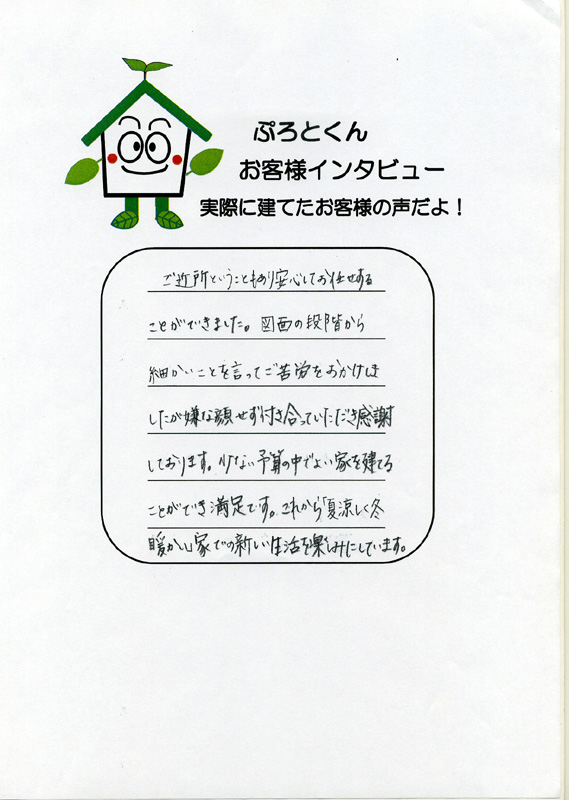 ぷろとくん
お客様インタビュー
実際に建てたお客様の声だよ！
ご近所ということもあり安心してお任せする
ことができました。図面の段階から
細かいことを言ってご苦労をおかけしま
したが嫌な顔せず付き合っていただき感謝
しております。少ない予算の中でよい家を建てる
ことができ満足です。これから「夏涼しく冬
暖かい」家での新しい生活を楽しみにしています。